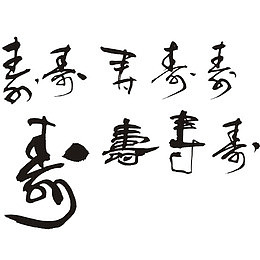 寿寿寿寿寿
寿壽寿寿